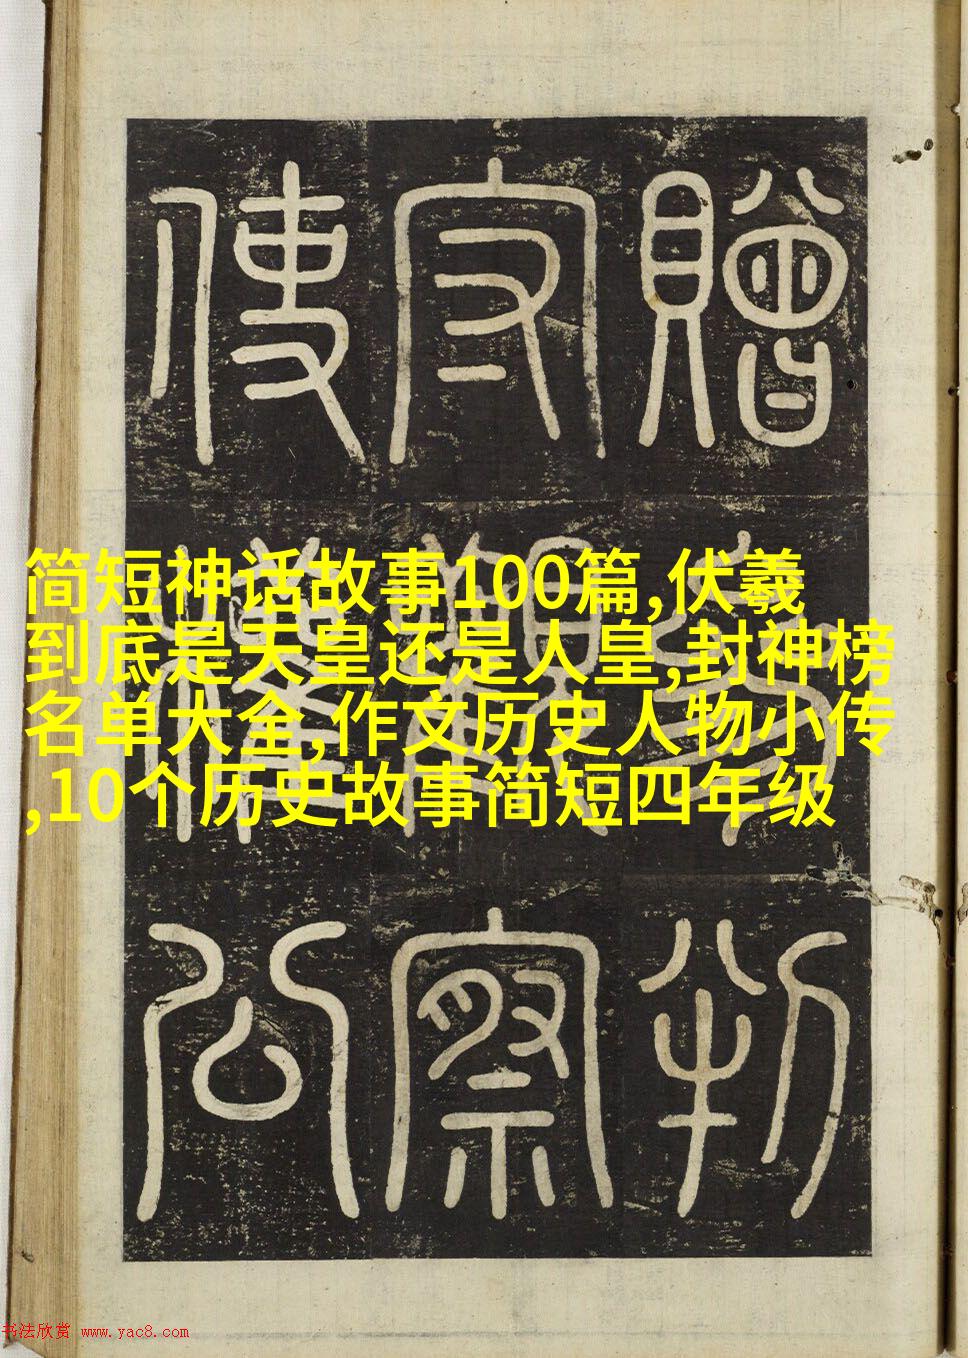 贈判
察
使公
简短神话故事100篇,伏羲
到底是天皇还是人皇,封神榜
名单大全,作文历史人物小传
,10个历史故事简短四年级
书法欣赏 www.yac8.com